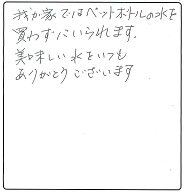 我が家ではペットボトルの水を
買わずにいられます.
美味しい水をいつも
ありがとうございます